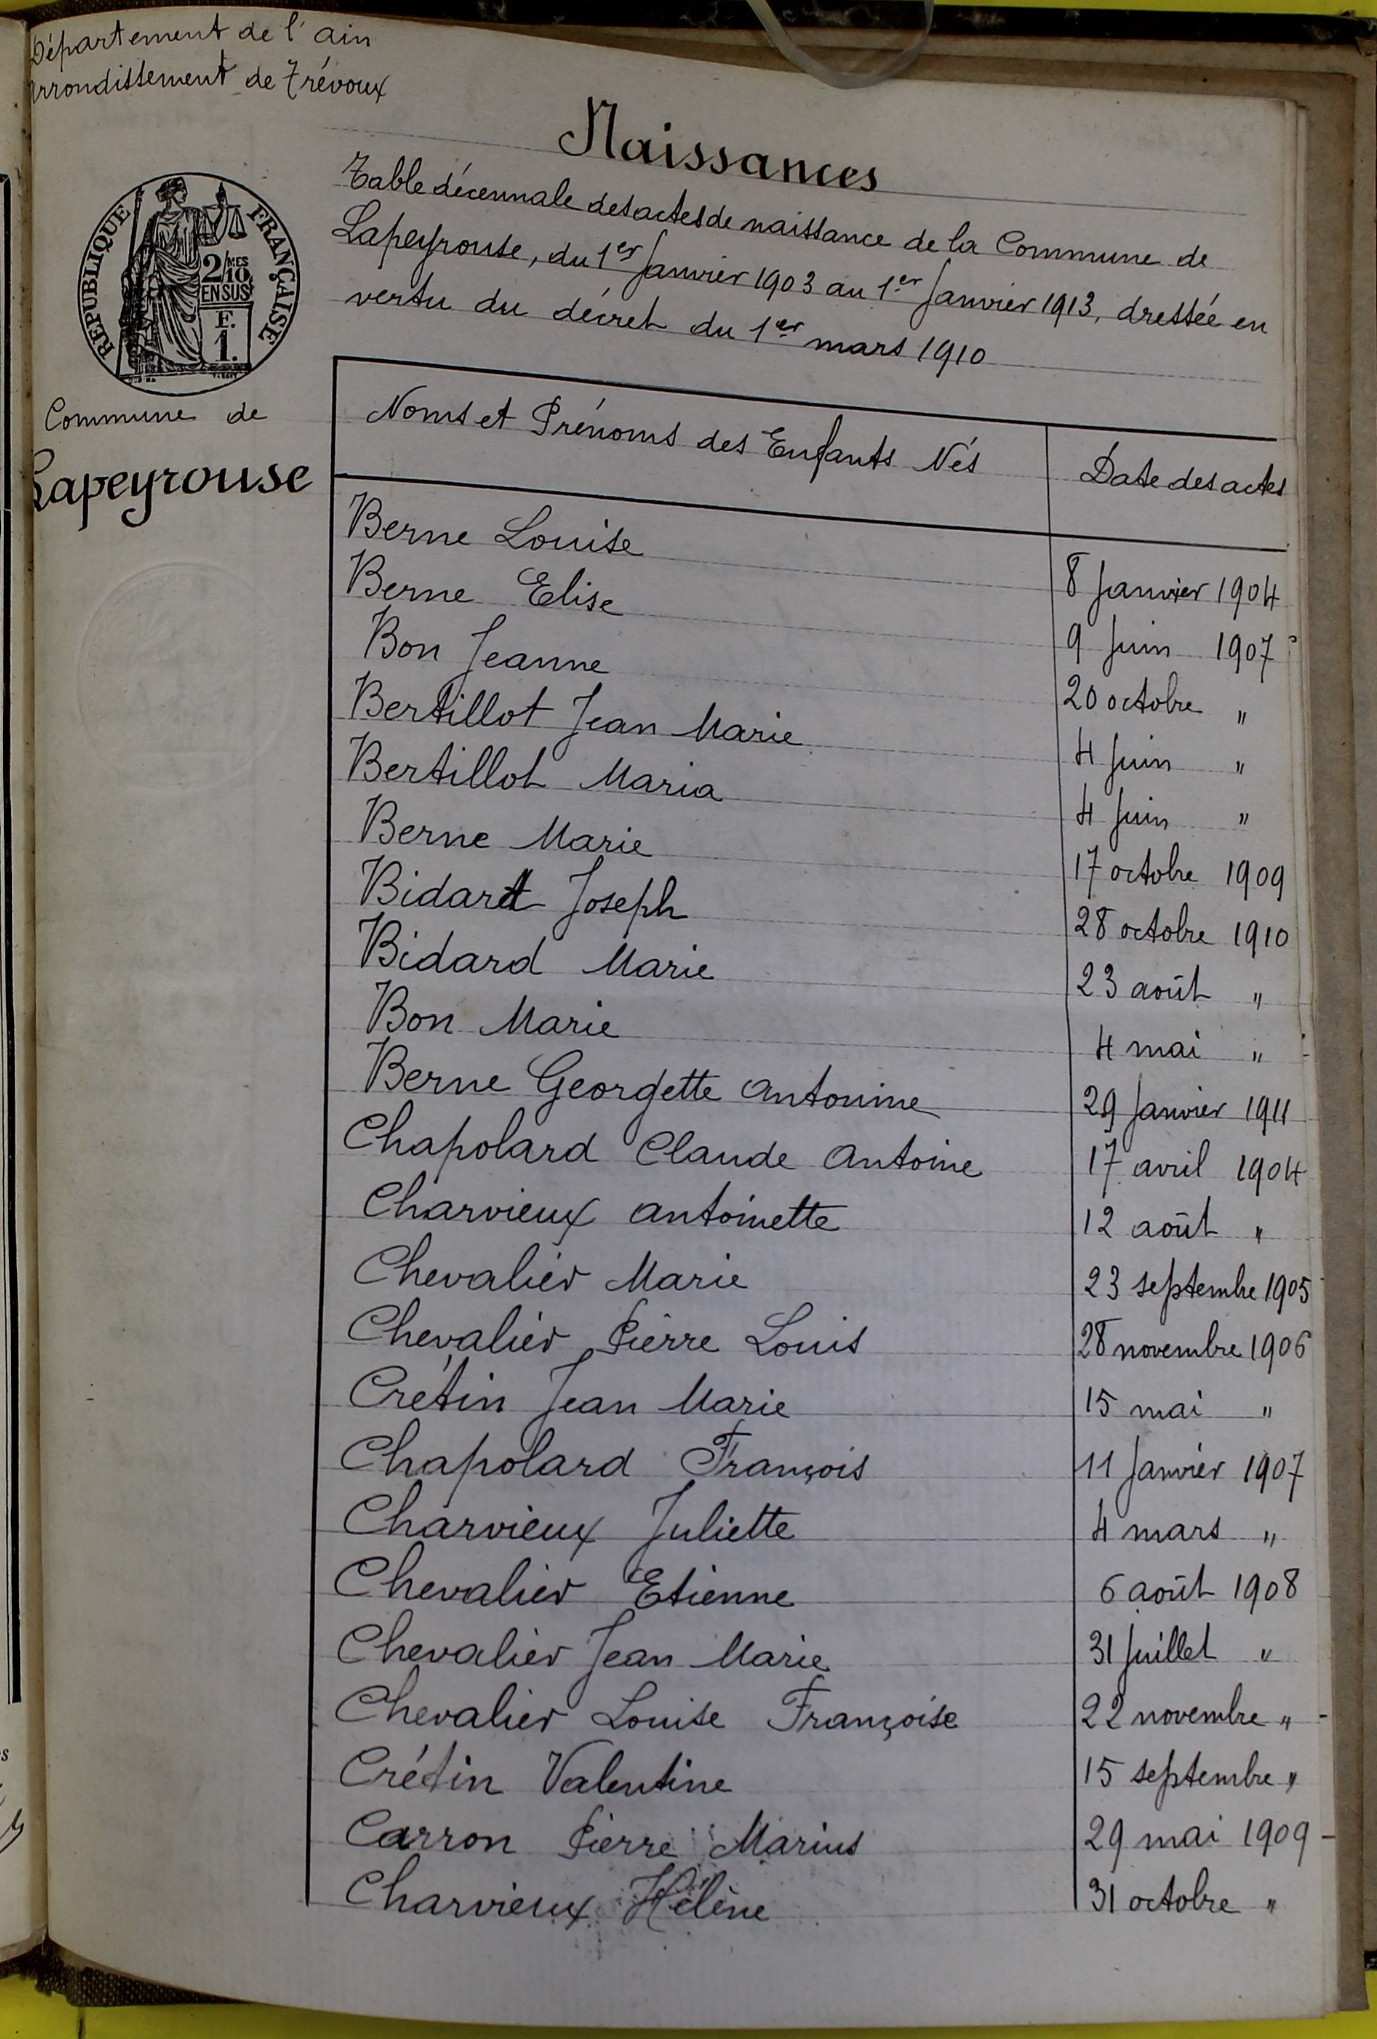 Département de l'ain
arrondissement de Trévoux
Naissances
Table décennale des actes de naissance de la Commune de
Lapeyrouse, du 1er Janvier 1903 au 1er Janvier 1913, dressée en
vertu du décret du 1er mars 1910
RÉPUBLIQUE FRANÇAISE
2/10 MES
EN SUS
E.
1.
Commune de
Lapeyrouse
Noms et Prénoms des Enfants Nés Date des actes
Berne Louise 8 Janvier 1904
Berne Elise 9 Juin 1907
Bon Jeanne 20 octobre "
Bertillot Jean Marie 4 Juin "
Bertillot Maria 4 Juin "
Berne Marie 17 octobre 1909
Bidard Joseph 28 octobre 1910
Bidard Marie 23 août "
Bon Marie 4 mai "
Berne Georgette antonine 29 Janvier 1911
Chapolard Claude antoine 17 avril 1904
Charvieux antoinette 12 août "
Chevalier Marie 23 septembre 1905
Chevalier Pierre Louis 28 novembre 1906
Crétin Jean Marie 15 mai "
Chapolard François 11 Janvier 1907
Charvieux Juliette 4 mars "
Chevalier Etienne 6 août 1908
Chevalier Jean Marie 31 Juillet "
Chevalier Louise Françoise 22 novembre "
Crétin Valentine 15 septembre "
Carron Pierre Marius 29 mai 1909
Charvieux Hélène 31 octobre "